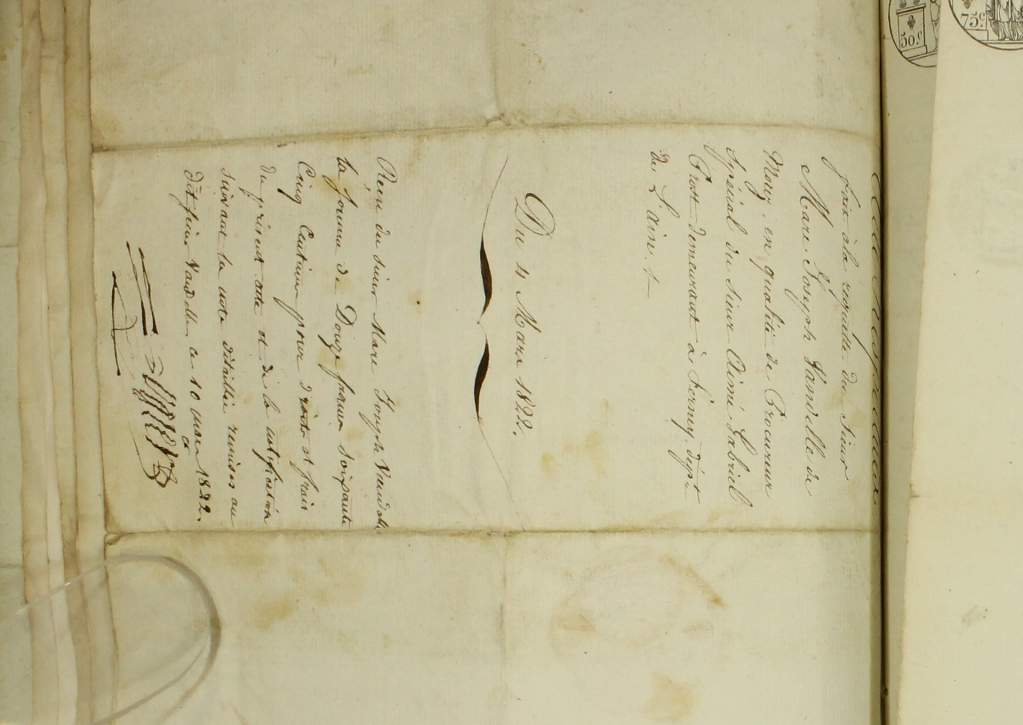 Acte Respectueux
fait à la requête du Sieur
Marc Joseph Vandelle de
Mouy, en qualité de Procureur
Spécial du Sieur Aimé Gabriel
demeurant à Ferney, dépt
de L'ain.
Du 4 Mars 1822.
Reçu du sieur Marc Joseph Vandelle
la somme de Douze francs soixante
Cinq Centimes pour droits et frais
du présent acte et de la notification
suivant la note détaillée remise au
dit sieur Vandelle ce 10 mars 1822.
50c
75c